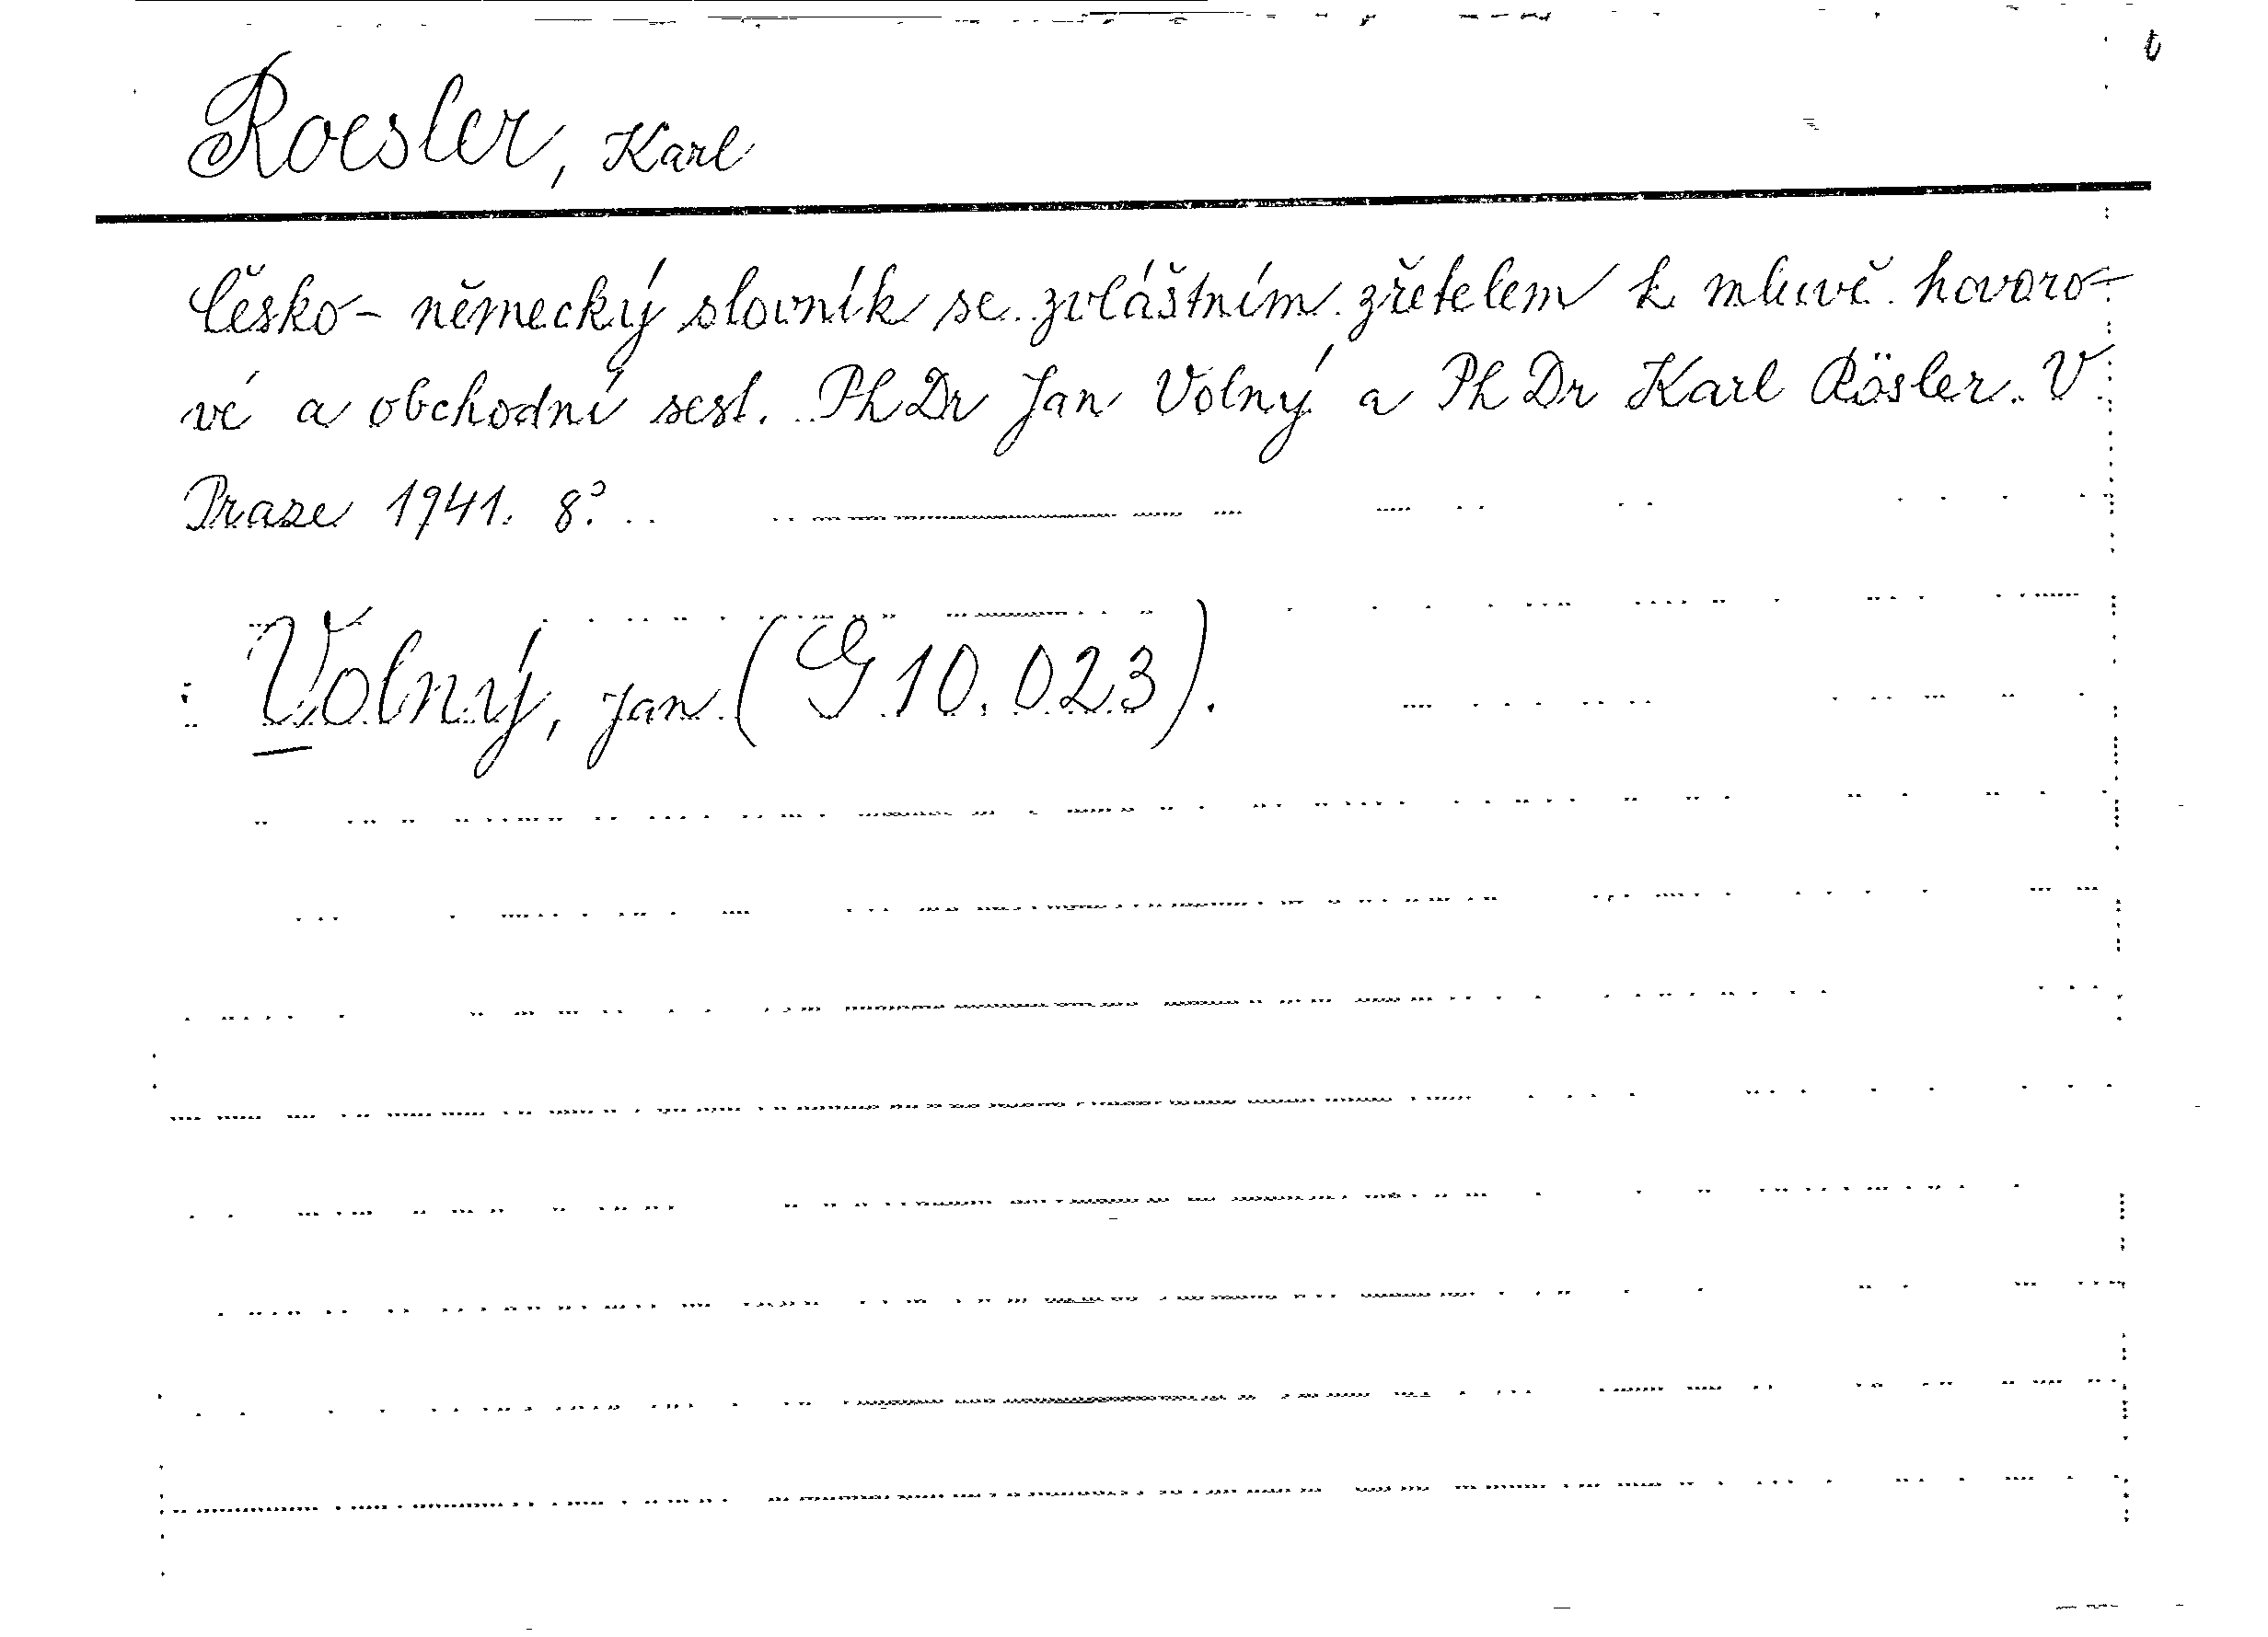 Roesler, Karl
Česko-německý slovník se zvláštním zřetelem k mluvě hovoro-
vé a obchodní sest. PhDr Jan Volný a PhDr Karl Rösler. V
Praze 1941. 8°.
Volný, Jan (G 10.023).